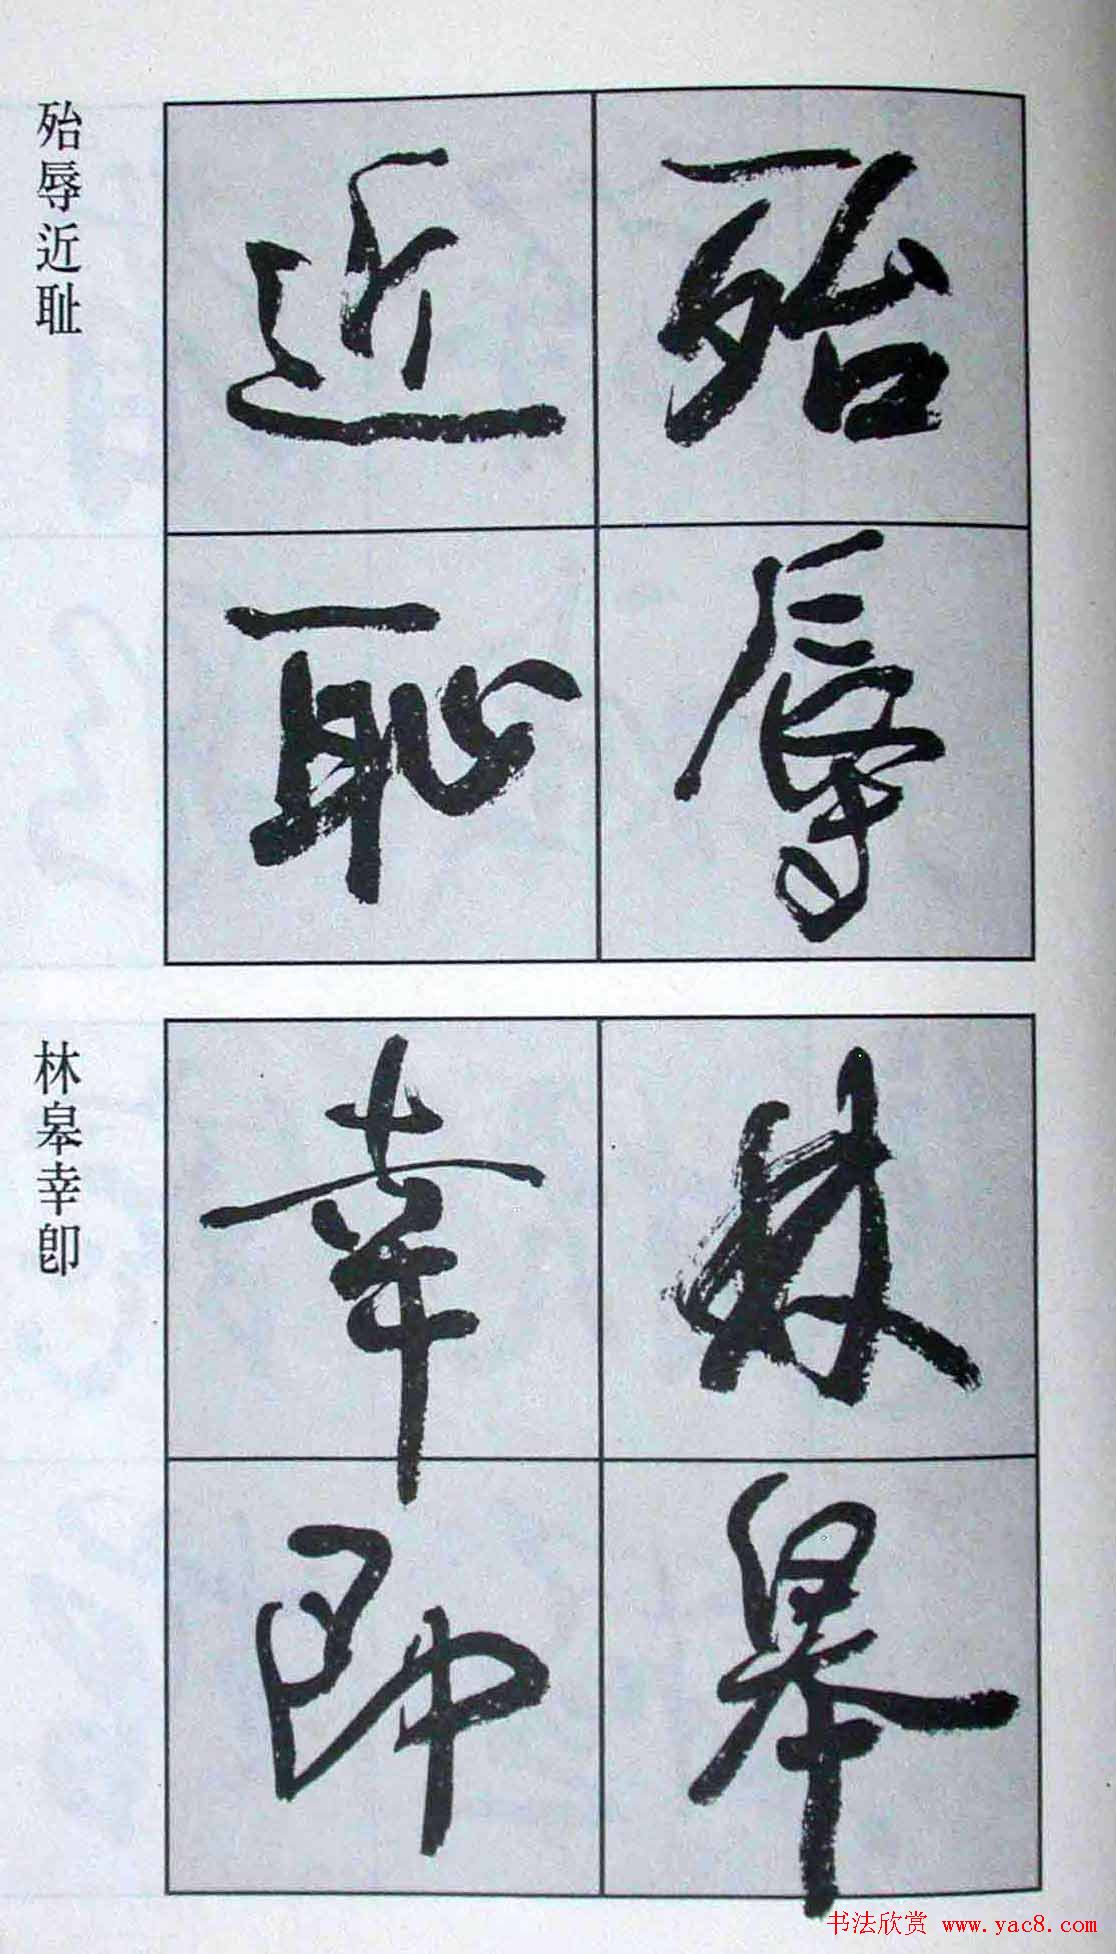 殆辱近耻
殆辱
近恥
林皋幸卽
林皋
幸即
书法欣赏 www.yac8.com